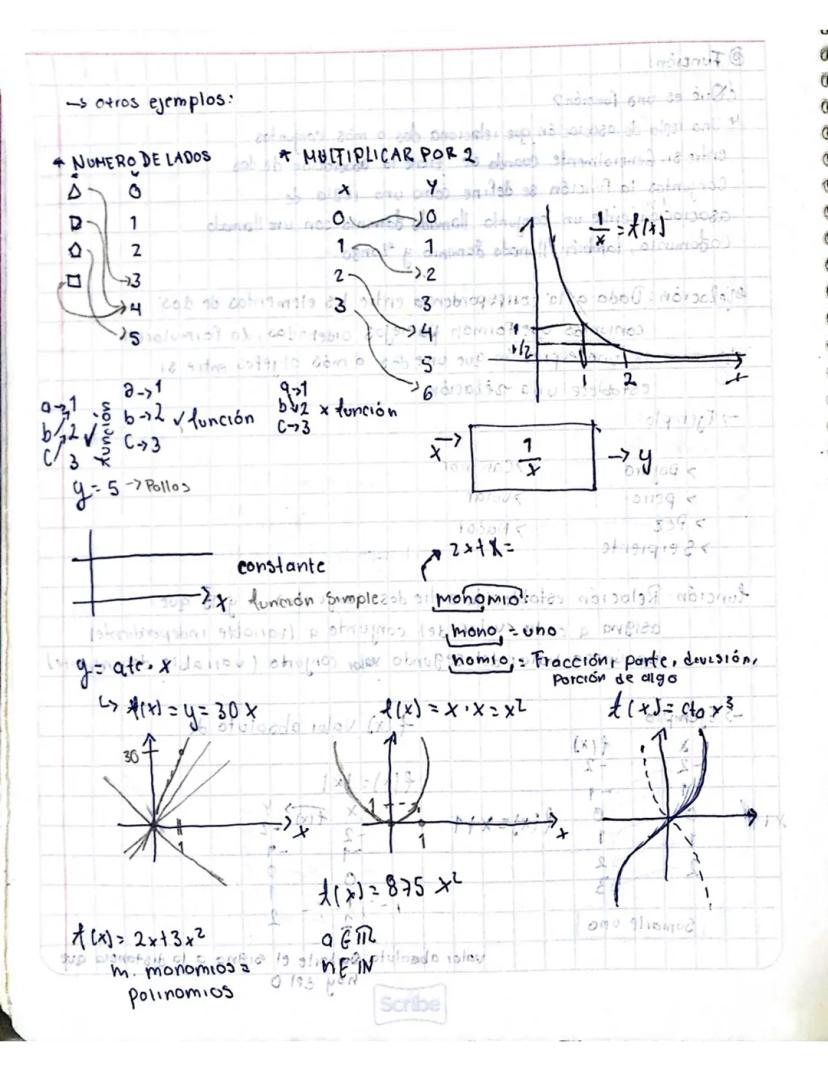 → otros ejemplos:
* NUMERO DE LADOS
0
1
2
3
4
5
* MULTIPLICAR POR 2
x y
0 0
1 1
2 2
3 3
4
5
6
1/x = f(x)
1
1/2
1 2
x
a→1
b 2
c 3
a→1
b→2 ✓ función
c→3
a→1
b→2 x función
c→3
x → 1/x → y
y = 5 → Pollos
constante
x
función simple
2x+x=
monomio:
mono = uno
nomio = Fracción, parte, división,
Porción de algo
y = cte · x
↳ f(x) = y = 30 x
30
1
x
f(x) = x · x = x²
1
1
x
f(x) = cto x³
f(x) = 875 x²
f(x) = 2x+3x²
m. monomios =
polinomios
a ∈ ℝ
n ∈ ℕ
Scribe